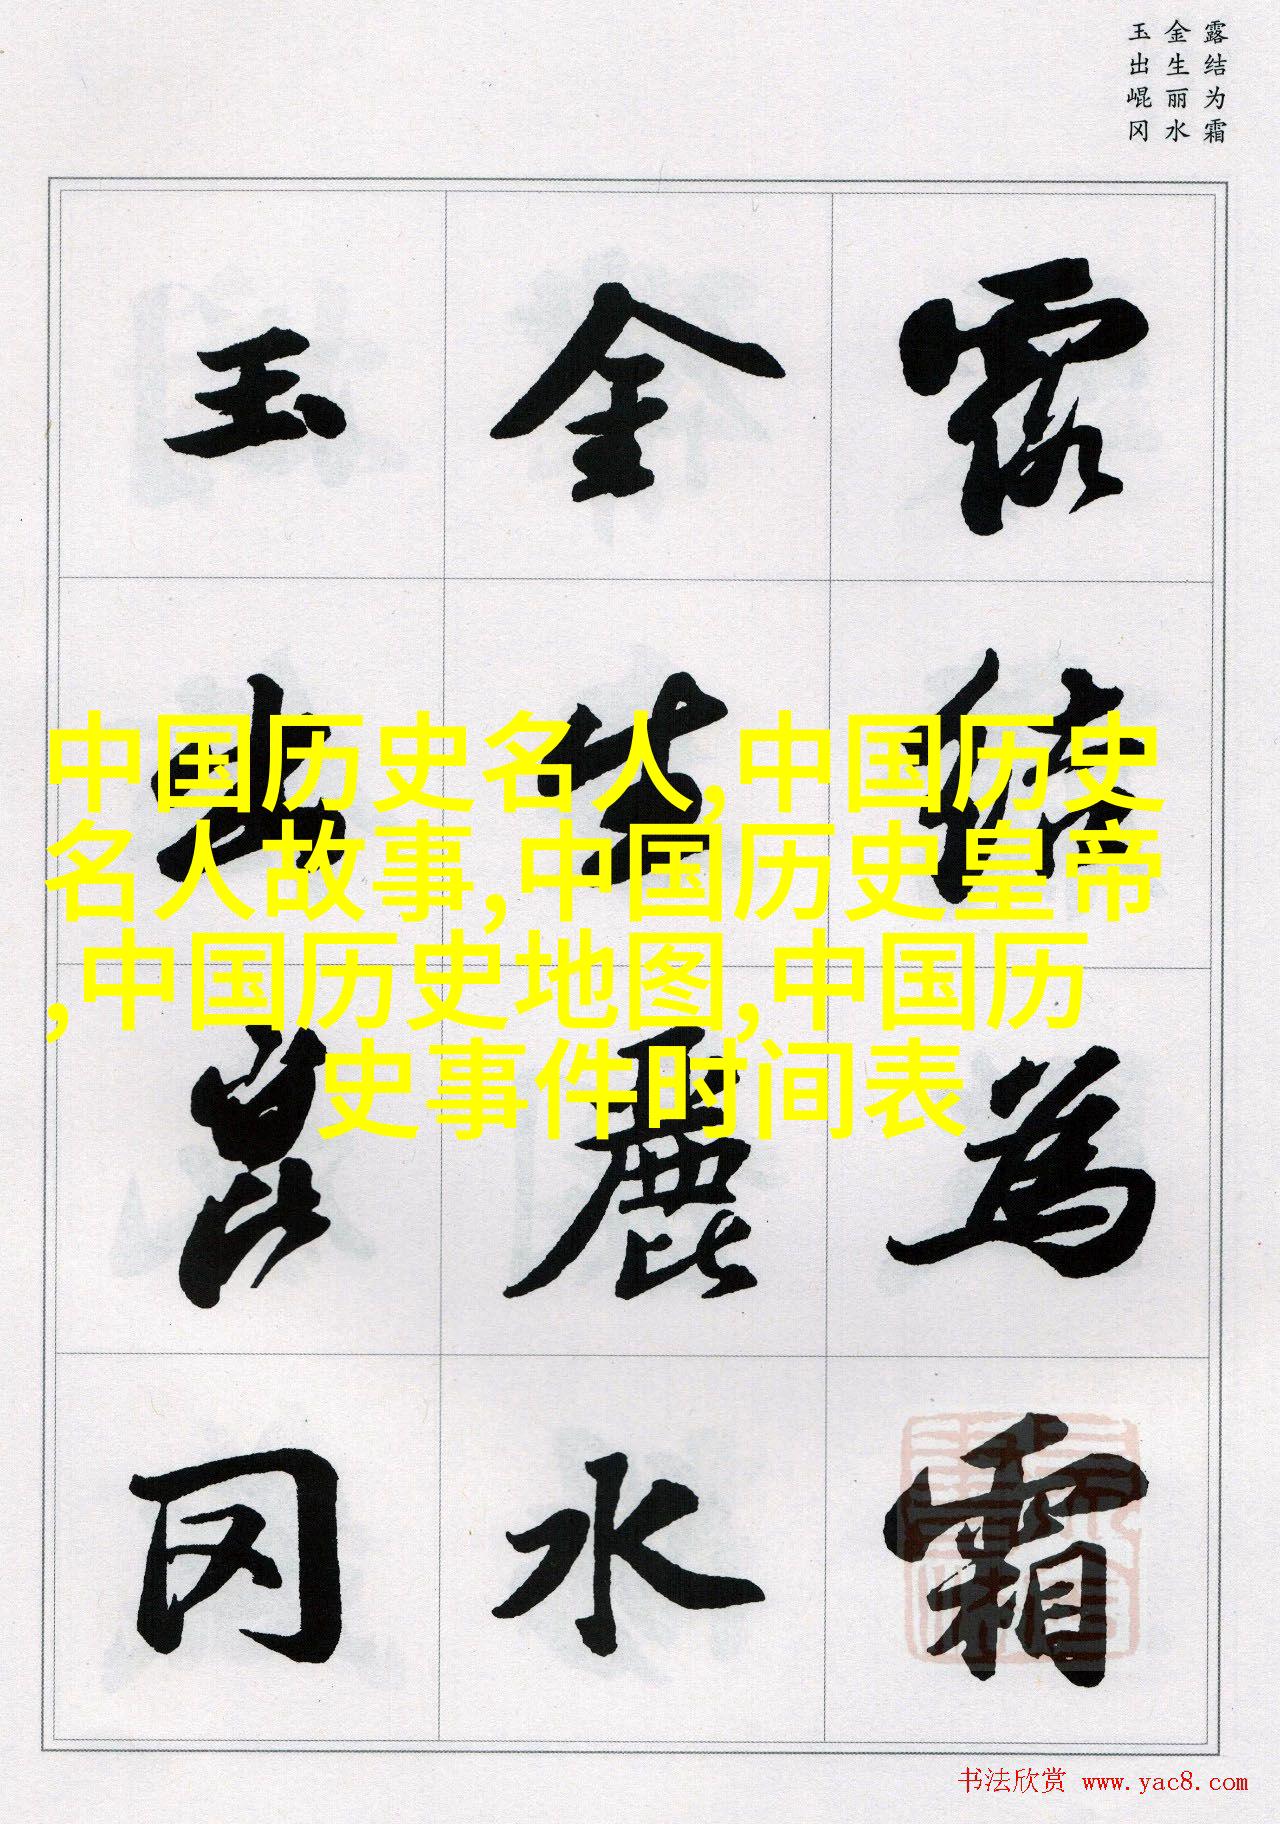 露结为霜
金生丽水
玉出崐冈
露結為霜
金生麗水
玉出崑冈
中国历史名人,中国历史
名人故事,中国历史皇帝
,中国历史地图,中国历
史事件时间表
书法欣赏 www.yac8.com